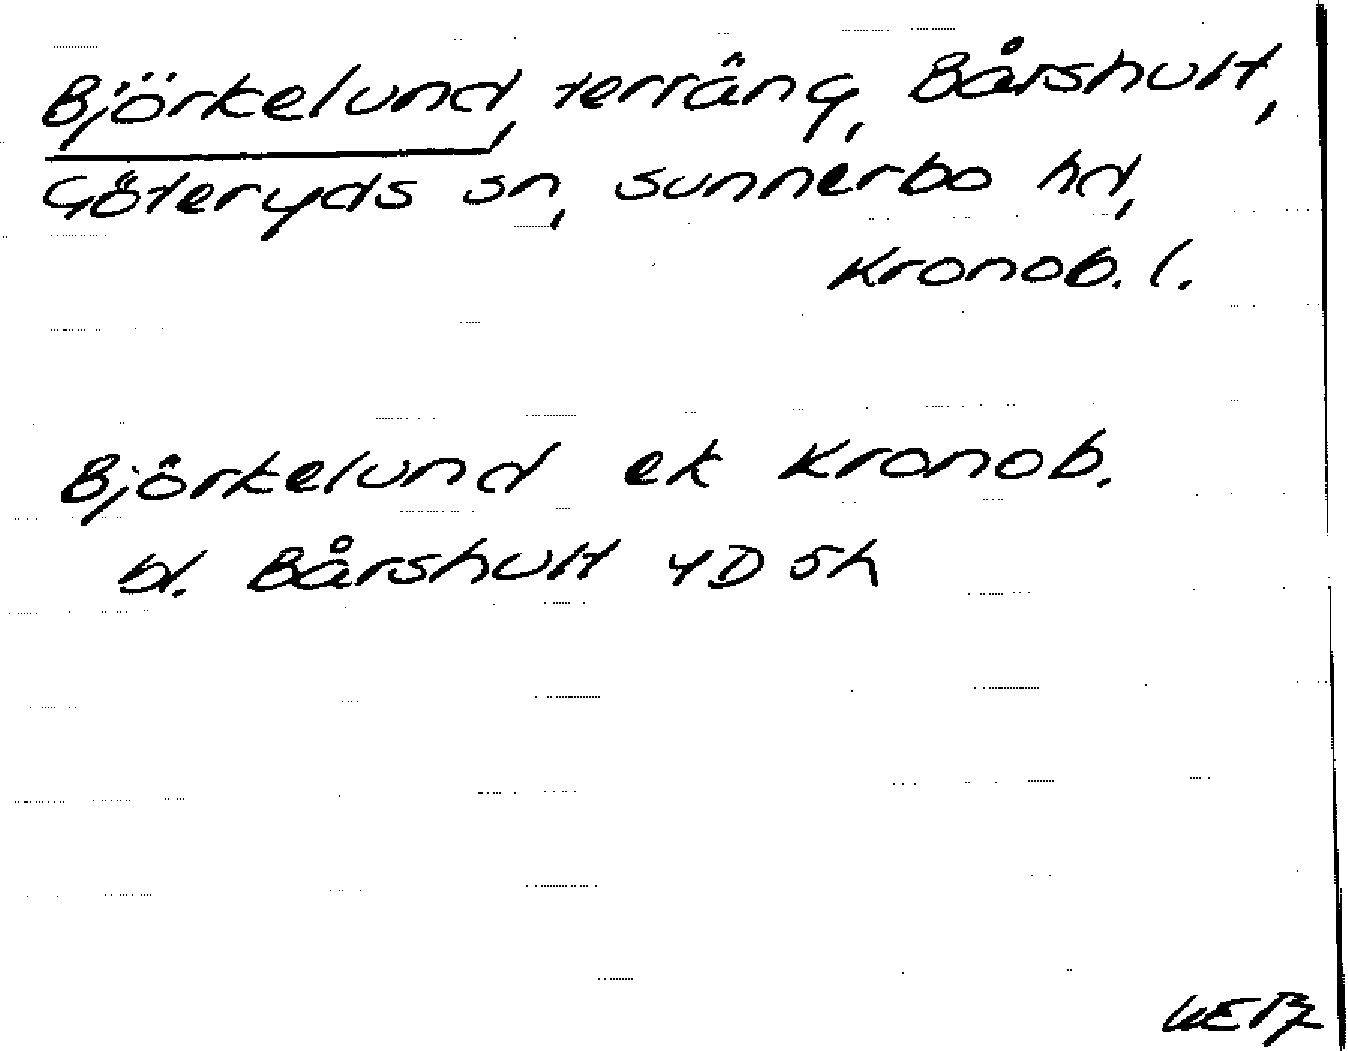 Björkelund, terräng, Bårshult,
Göteryds sn, Sunnerbo hd,
Kronob. l.
Björkelund ek Kronob.
bl. Bårshult 4D 5h